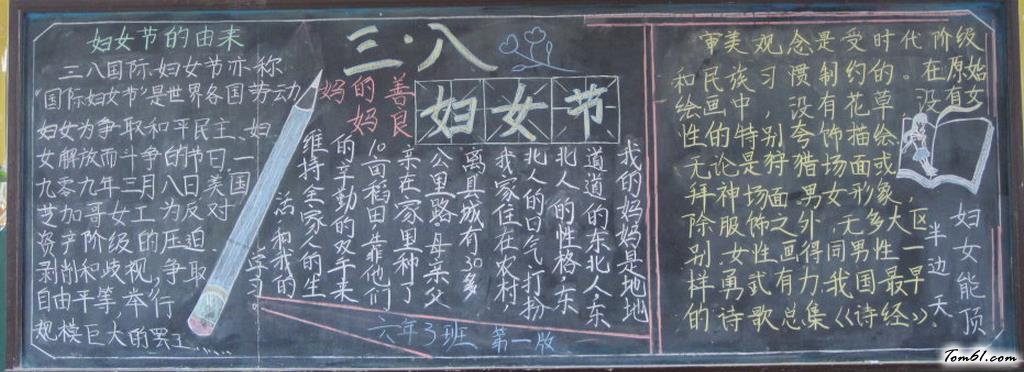 妇女节的由来
三八国际妇女节亦称
“国际妇女节”是世界各国劳动
妇女为争取和平民主、妇
女解放而斗争的节日,一
九零九年三月八日美国
芝加哥女工为反对
资产阶级的压迫、
剥削和歧视,争取
自由平等,举行
规模巨大的罢工......
三·八
妇女节
善良
的
妈妈
我的妈妈是地地
道道的东北人,东
北人的性格,东
北人的口气打扮
我家住在农村,
离县城有30多
公里路.母亲父
亲在家里种了
10亩稻田,靠他们
的辛勤的双手来
维持全家人的生
活和我的
学习.
六年3班 第一版
审美观念是受时代阶级
和民族习惯制约的。在原始
绘画中,没有花草没有女
性的特别夸饰描绘
无论是狩猎场面或
拜神场面,男女形象,
除服饰之外,无多大区
别.女性画得同男性一
样勇武有力.我国最早
的诗歌总集《诗经》、
妇女能顶
半边天
Tom61.com